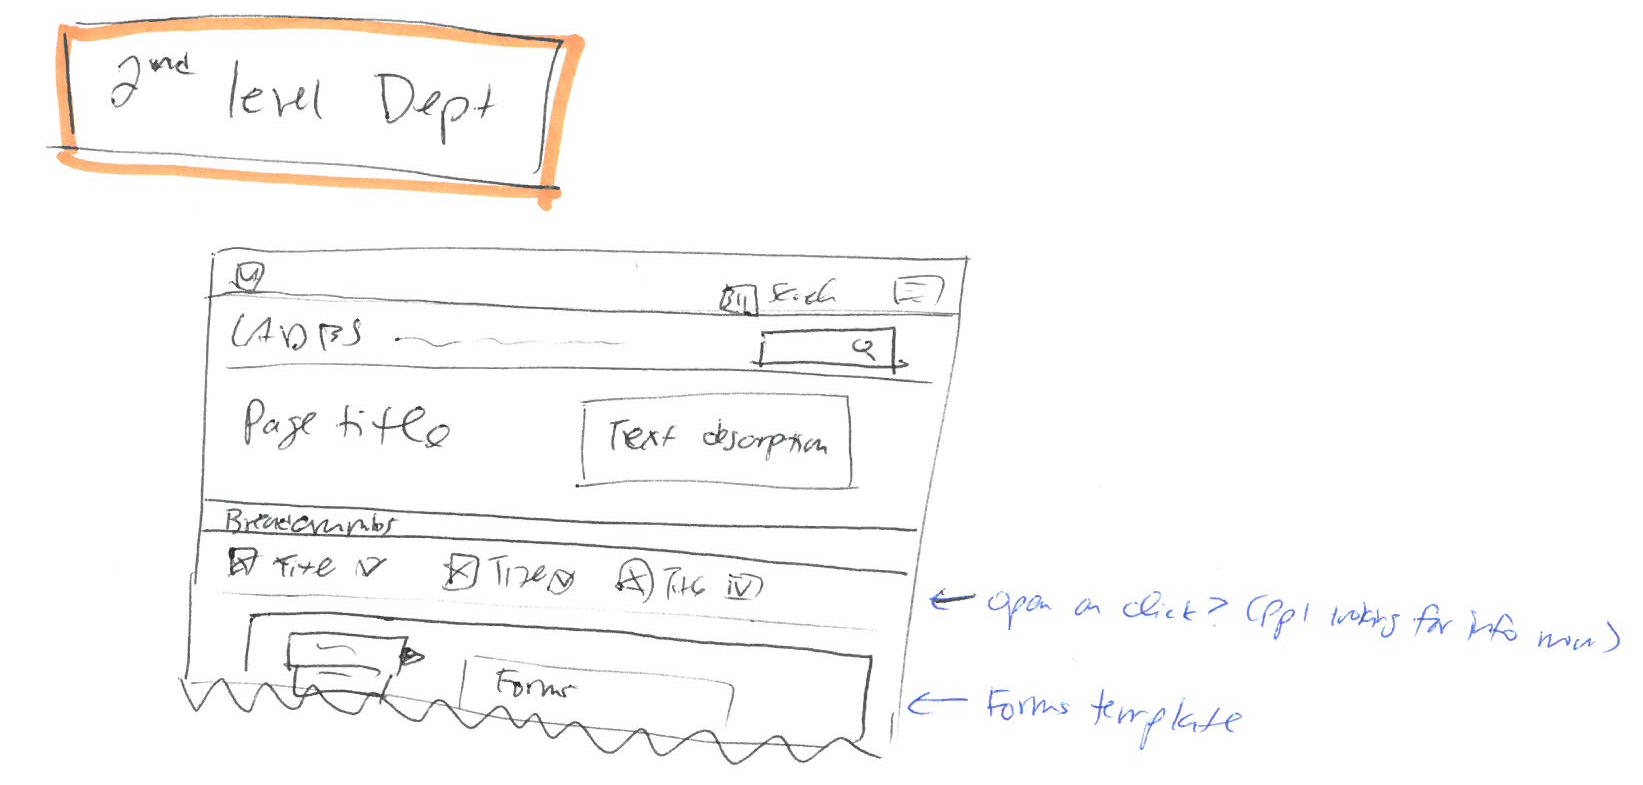 2nd level Dept
Search
LADBS
Page title
Text description
Breadcrumbs
Title Title Title
← open on click? (ppl looking for info now)
Forms
← Forms template